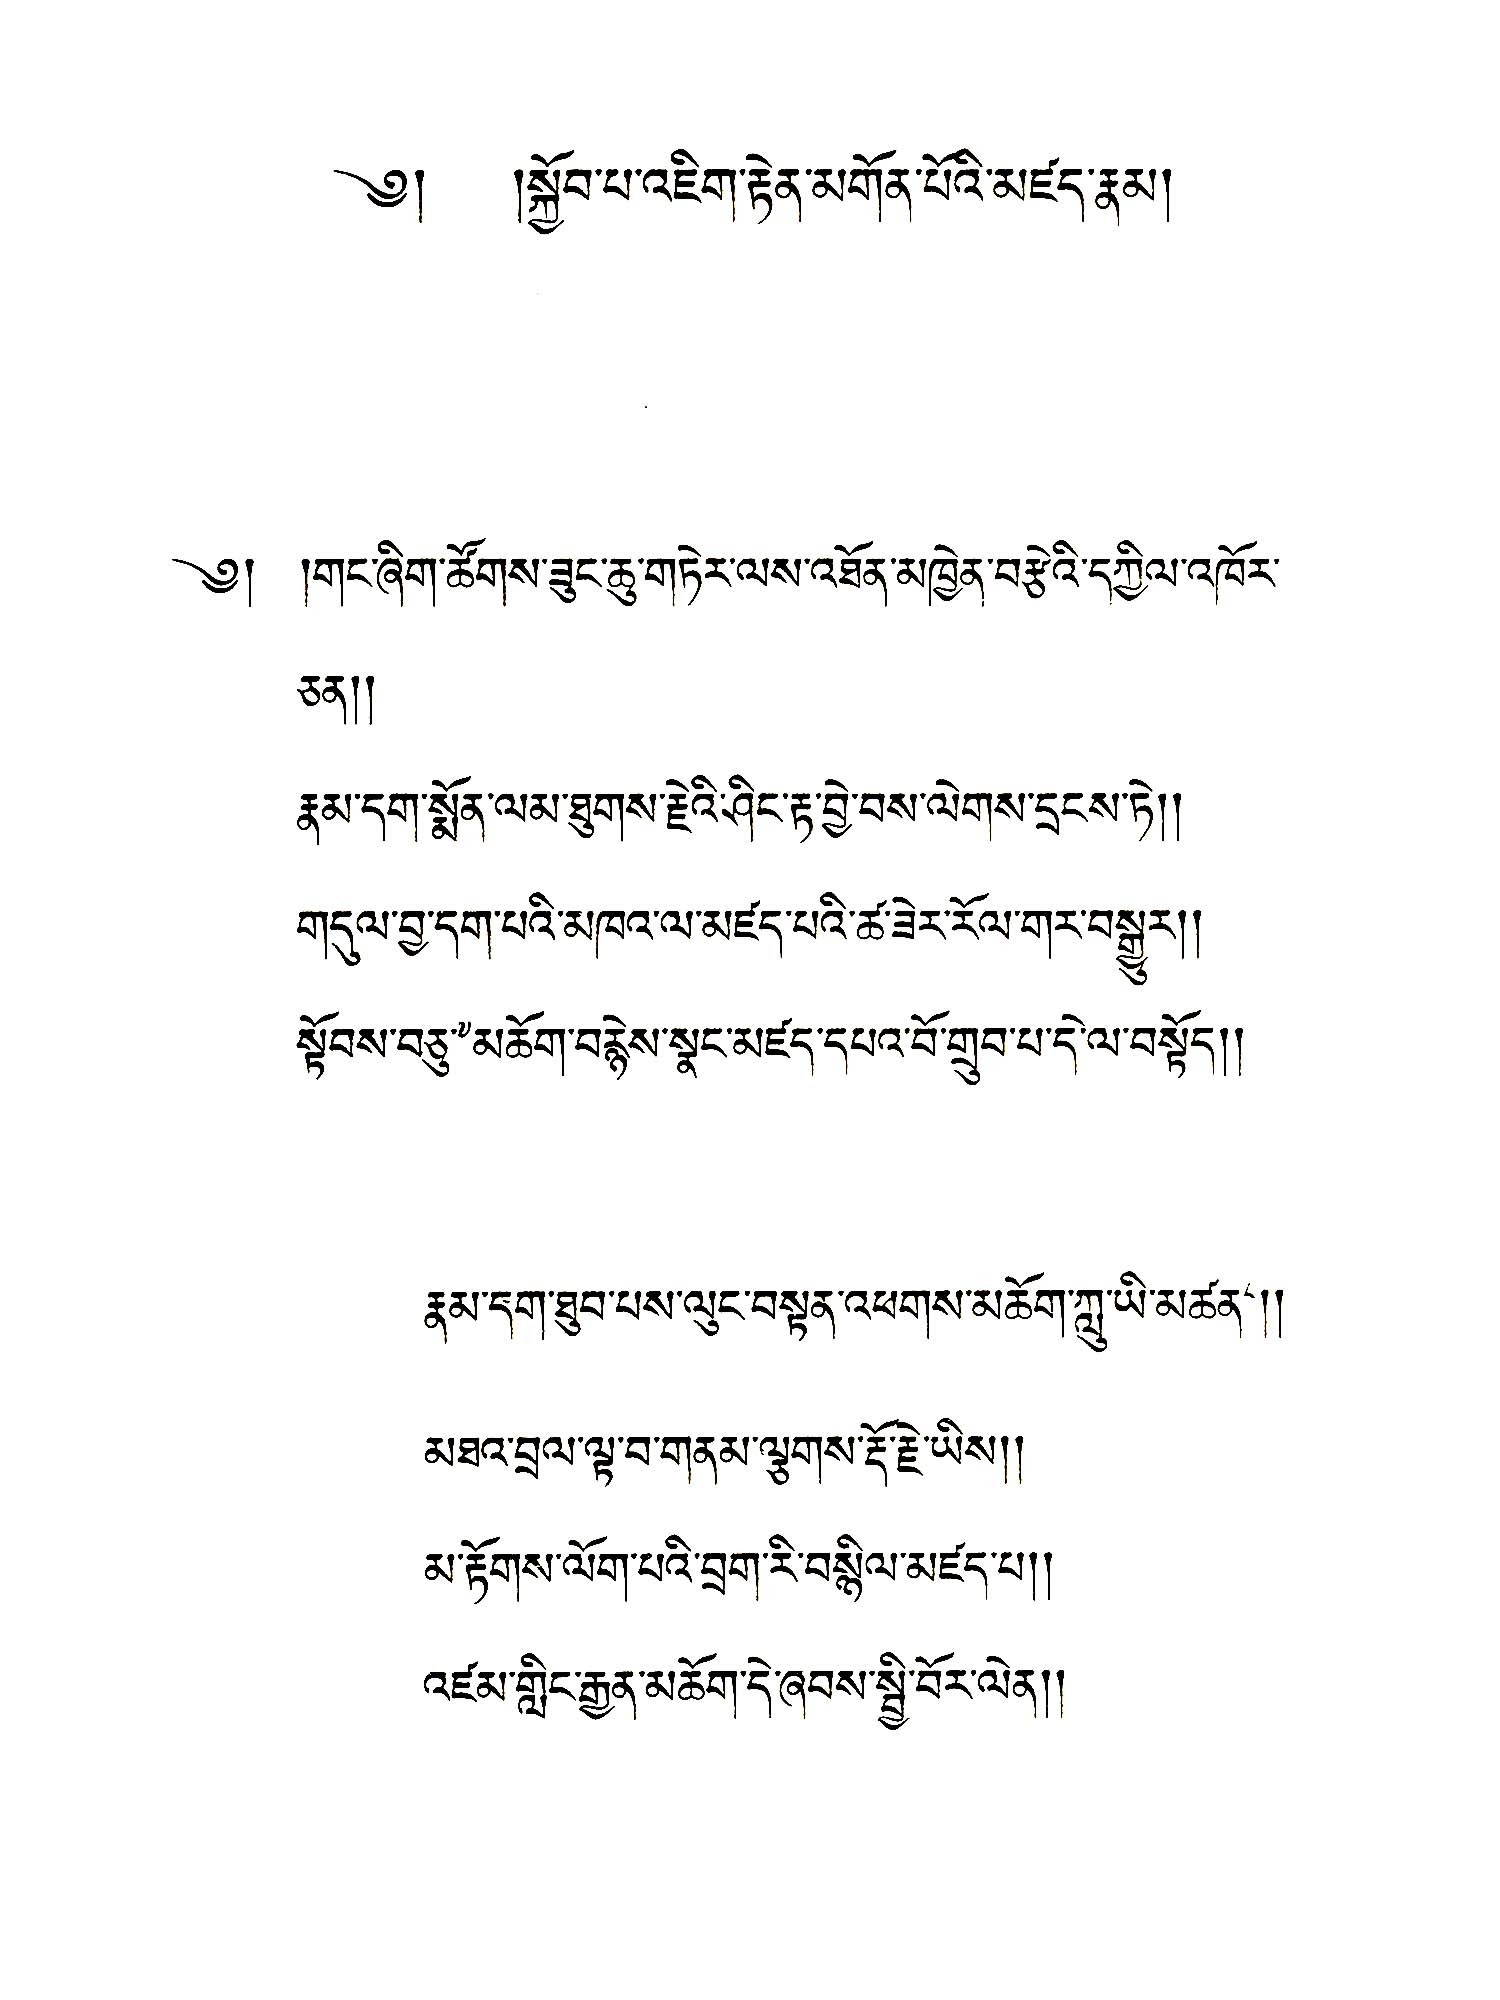 ༄། །སྐྱོབ་པ་འཇིག་རྟེན་མགོན་པོའི་མཛད་རྣམ།
༄། །གང་ཞིག་ཚོགས་ཟུང་ཆུ་གཏེར་ལས་འཐོན་མཁྱེན་བརྩེའི་དཀྱིལ་འཁོར་
ཅན།།
རྣམ་དག་སྨོན་ལམ་ཐུགས་རྗེའི་ཤིང་རྟ་བྱེ་བས་ལེགས་དྲངས་ཏེ།།
གདུལ་བྱ་དག་པའི་མཁའ་ལ་མཛད་པའི་ཚ་ཟེར་རོལ་གར་བསྒྱུར།།
སྟོབས་བཅུ་༧མཆོག་བརྙེས་སྣང་མཛད་དཔའ་བོ་གྲུབ་པ་དེ་ལ་བསྟོད།།
རྣམ་དག་ཐུབ་པས་ལུང་བསྟན་འཕགས་མཆོག་ཀླུ་ཡི་མཚན༨།།
མཐའ་བྲལ་ལྟ་བ་གནམ་ལྕགས་རྡོ་རྗེ་ཡིས།།
མ་རྟོགས་ལོག་པའི་བྲག་རི་བསྙིལ་མཛད་པ།།
འཛམ་གླིང་རྒྱན་མཆོག་དེ་ཞབས་སྤྱི་བོར་ལེན།།